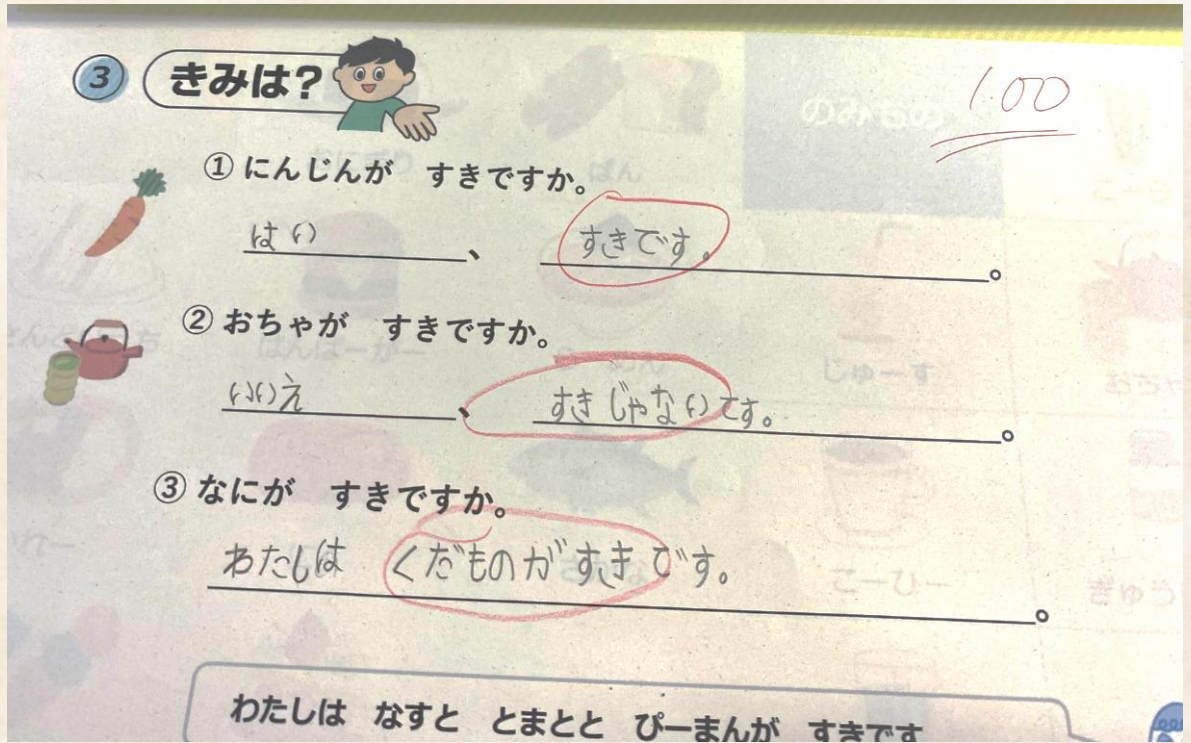 ③ きみは?
100
① にんじんが すきですか。
はい、 すきです。。
② おちゃが すきですか。
いいえ、 すきじゃないです。。
③ なにが すきですか。
わたしは くだものがすきです。。
わたしは なすと とまとと ぴーまんが すきです
のみもの
ぱん
はんばーがー
じゅーす
こーひー